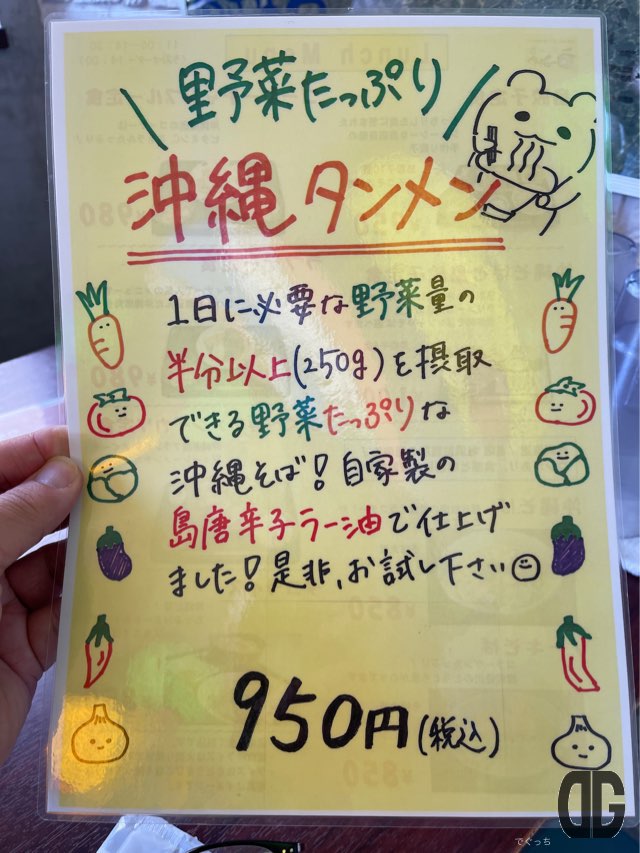 野菜たっぷり
沖縄タンメン
1日に必要な野菜量の
半分以上(250g)を摂取
できる野菜たっぷりな
沖縄そば!自家製の
島唐辛子ラー油で仕上げ
ました!是非、お試し下さい
950円(税込)
DG
でぐっち